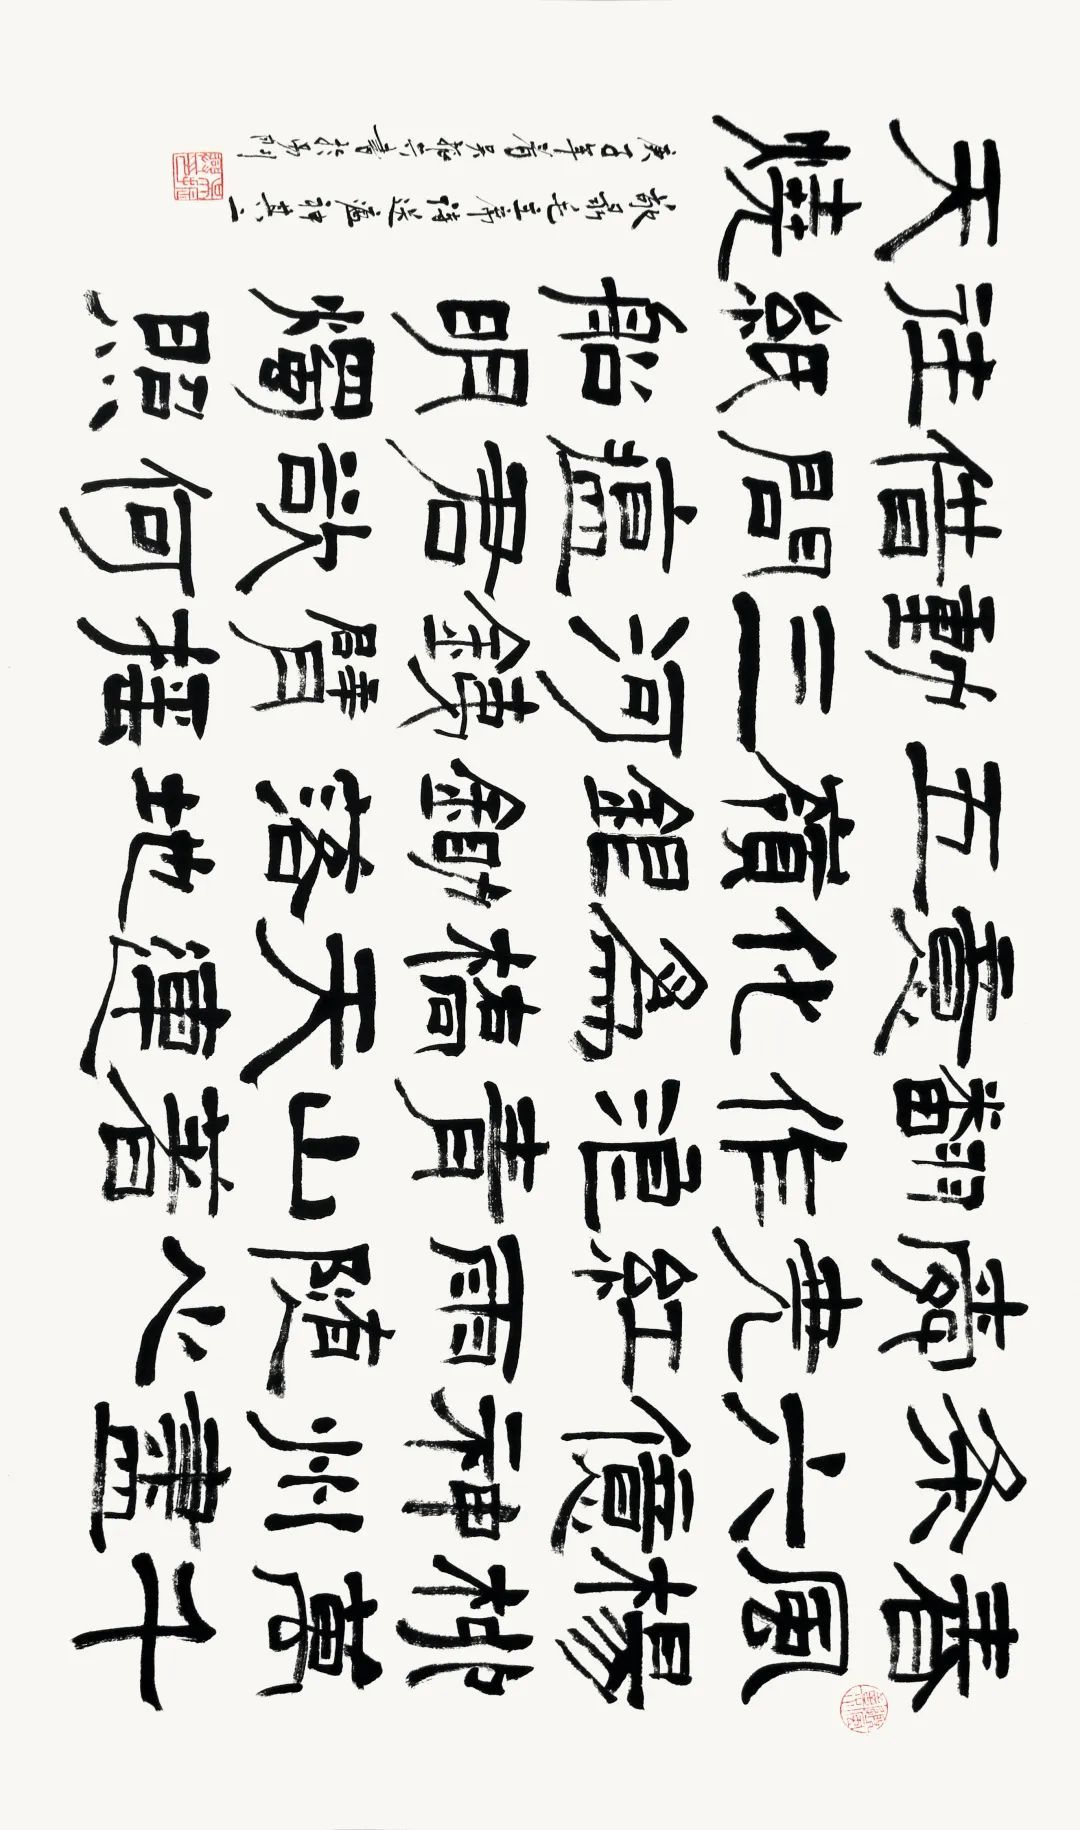 春風楊柳萬千
条六億神州盡
舜堯紅雨隨心
翻作浪青山着
意化爲橋天連
五嶺銀鋤落地
動三河鐵臂搖
借問瘟君欲何
往紙船明燭照
天燒
敬录毛主席诗送瘟神其二
庚子年首吴振立書於